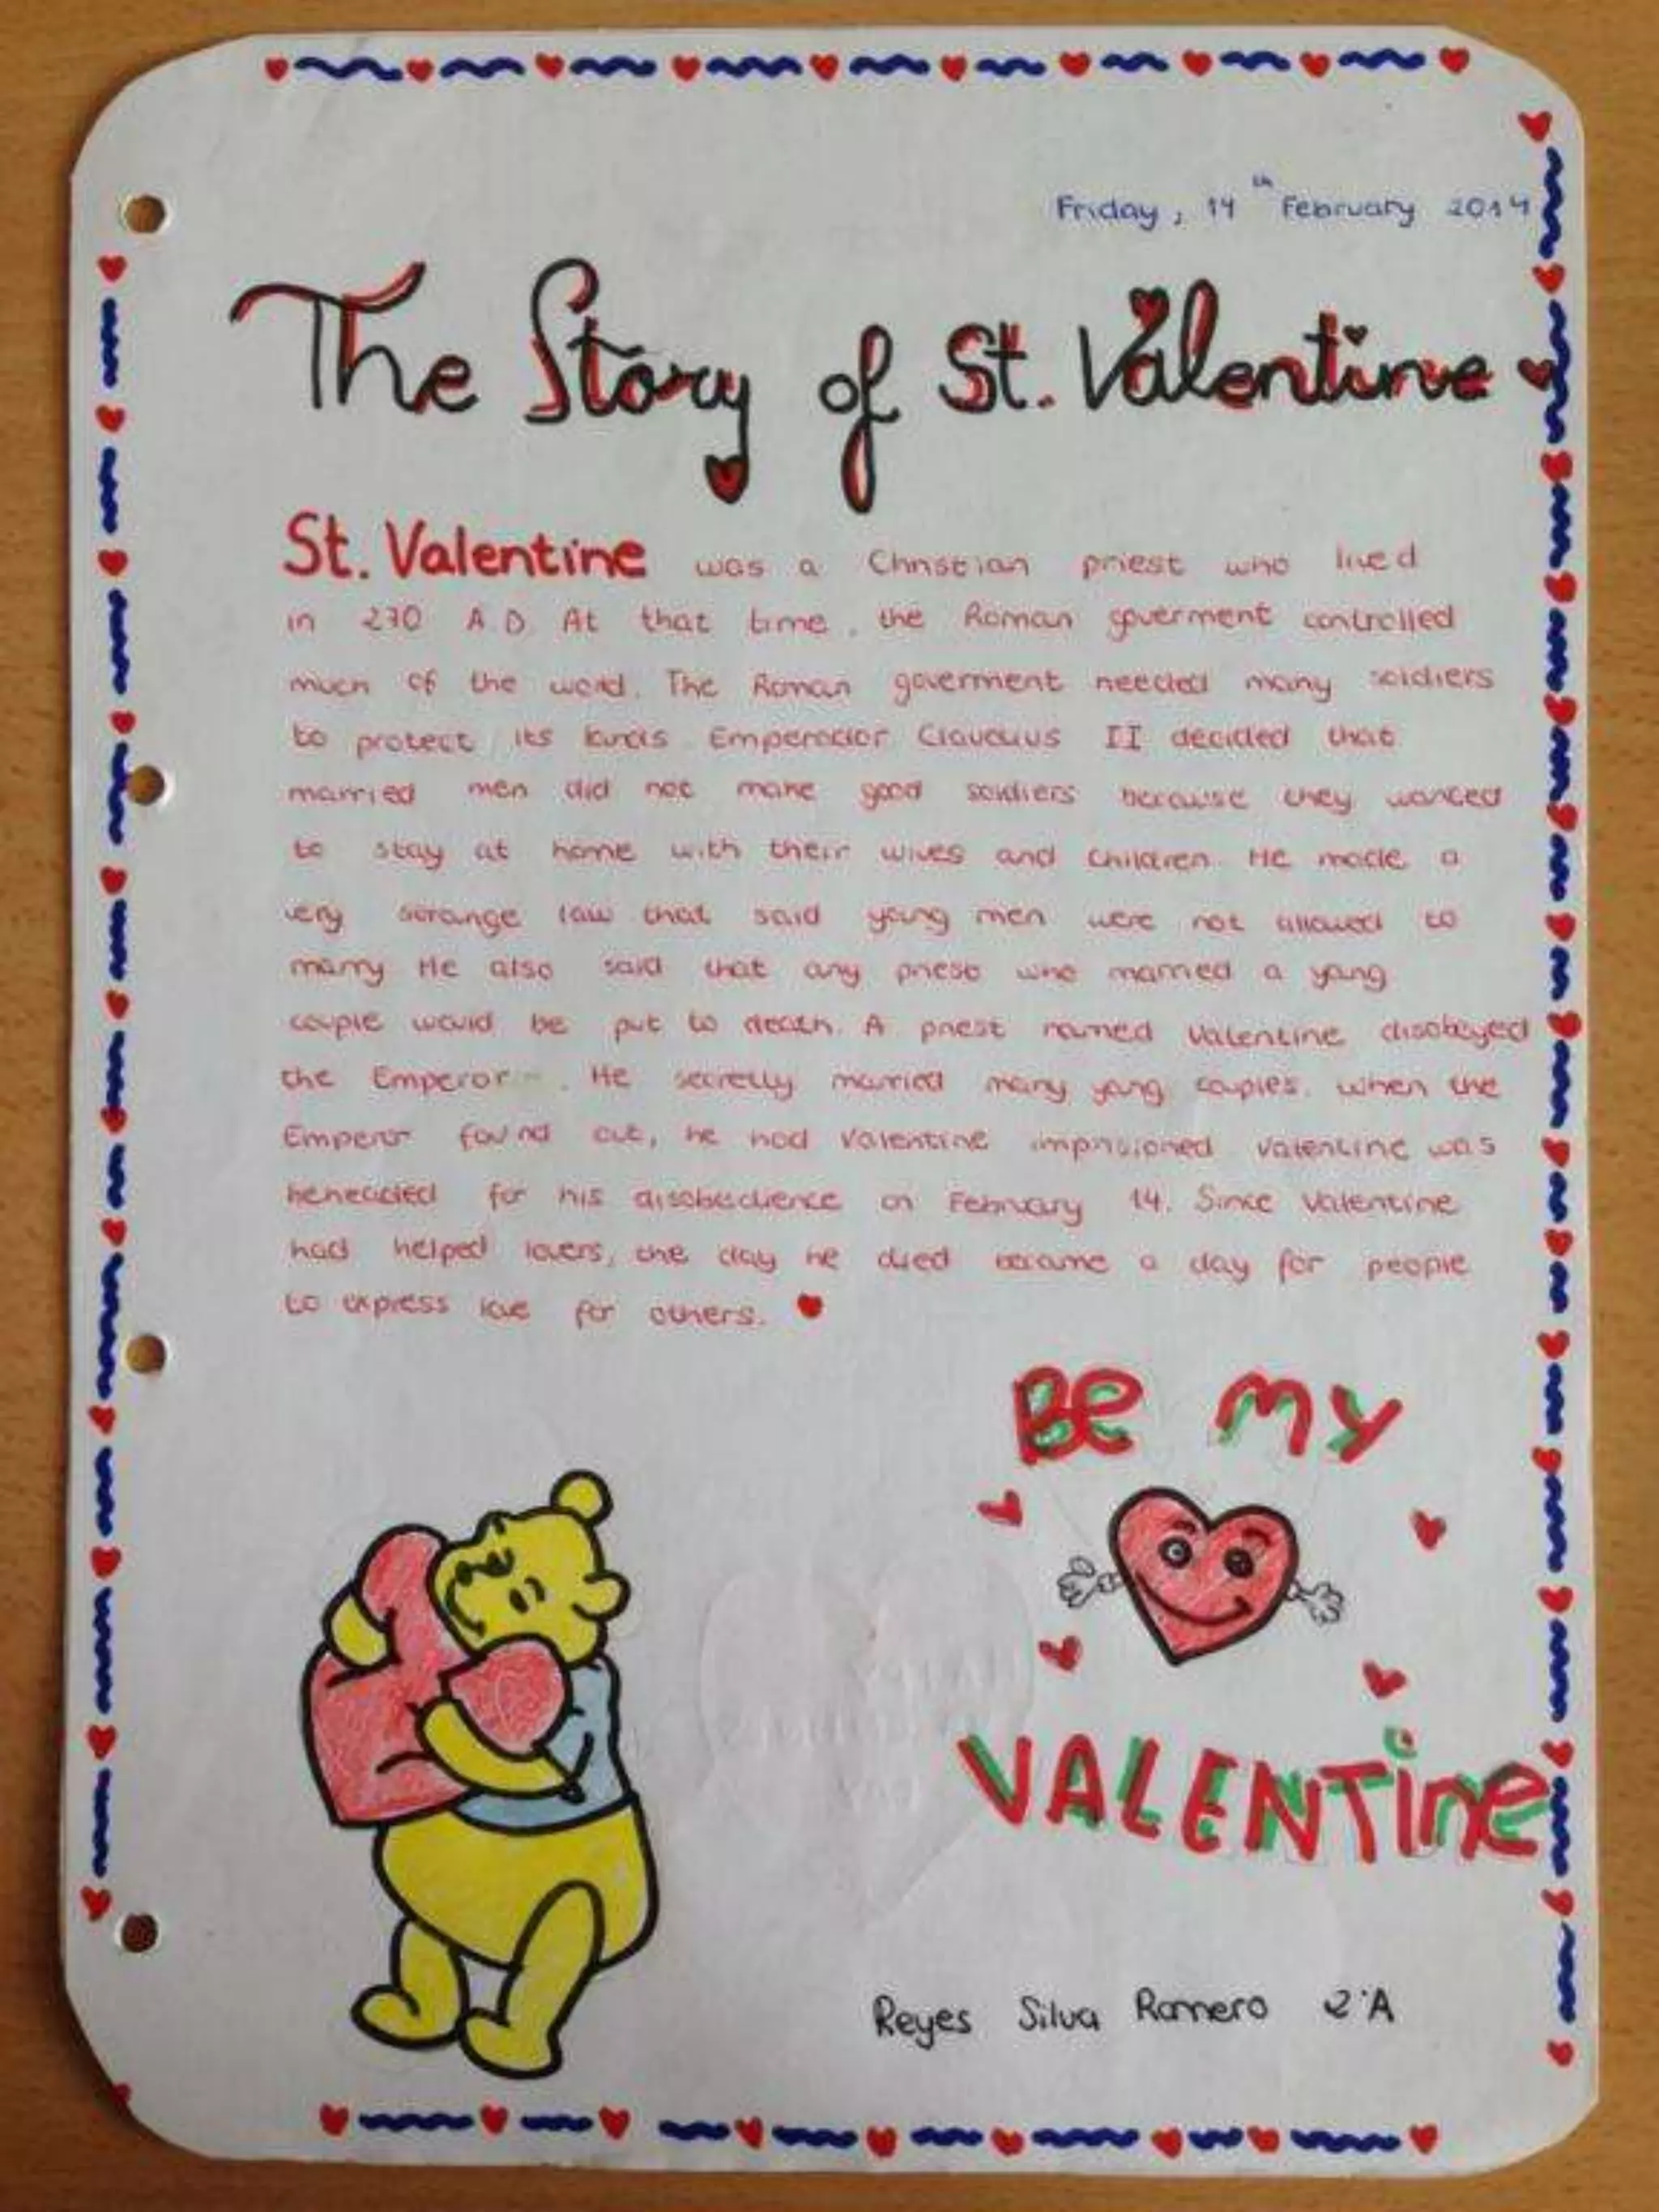 Friday, 14th February 2014
The Story of St. Valentine
St. Valentine was a Christian priest who lived
in 270 A.D. At that time, the Roman goverment controlled
much of the word. The Roman goverment needed many soldiers
to protect its lands. Emperador Claudius II decided that
married men did not make good soldiers because they wanted
to stay at home with their wives and children. He made a
very strange law that said young men were not allowed to
marry He also said that any priest who married a yang
couple would be put to death. A priest named Valentine disobeyed
the Emperor. He secretly married many yang couples. When the
Emperor found out, he had Valentine imprisioned Valentine was
heneaded for his disobedience on February 14. Since Valentine
had helped lovers, the day he died became a day for people
to express love for others.
Be my
VALENTine
Reyes Silva Romero 2ºA